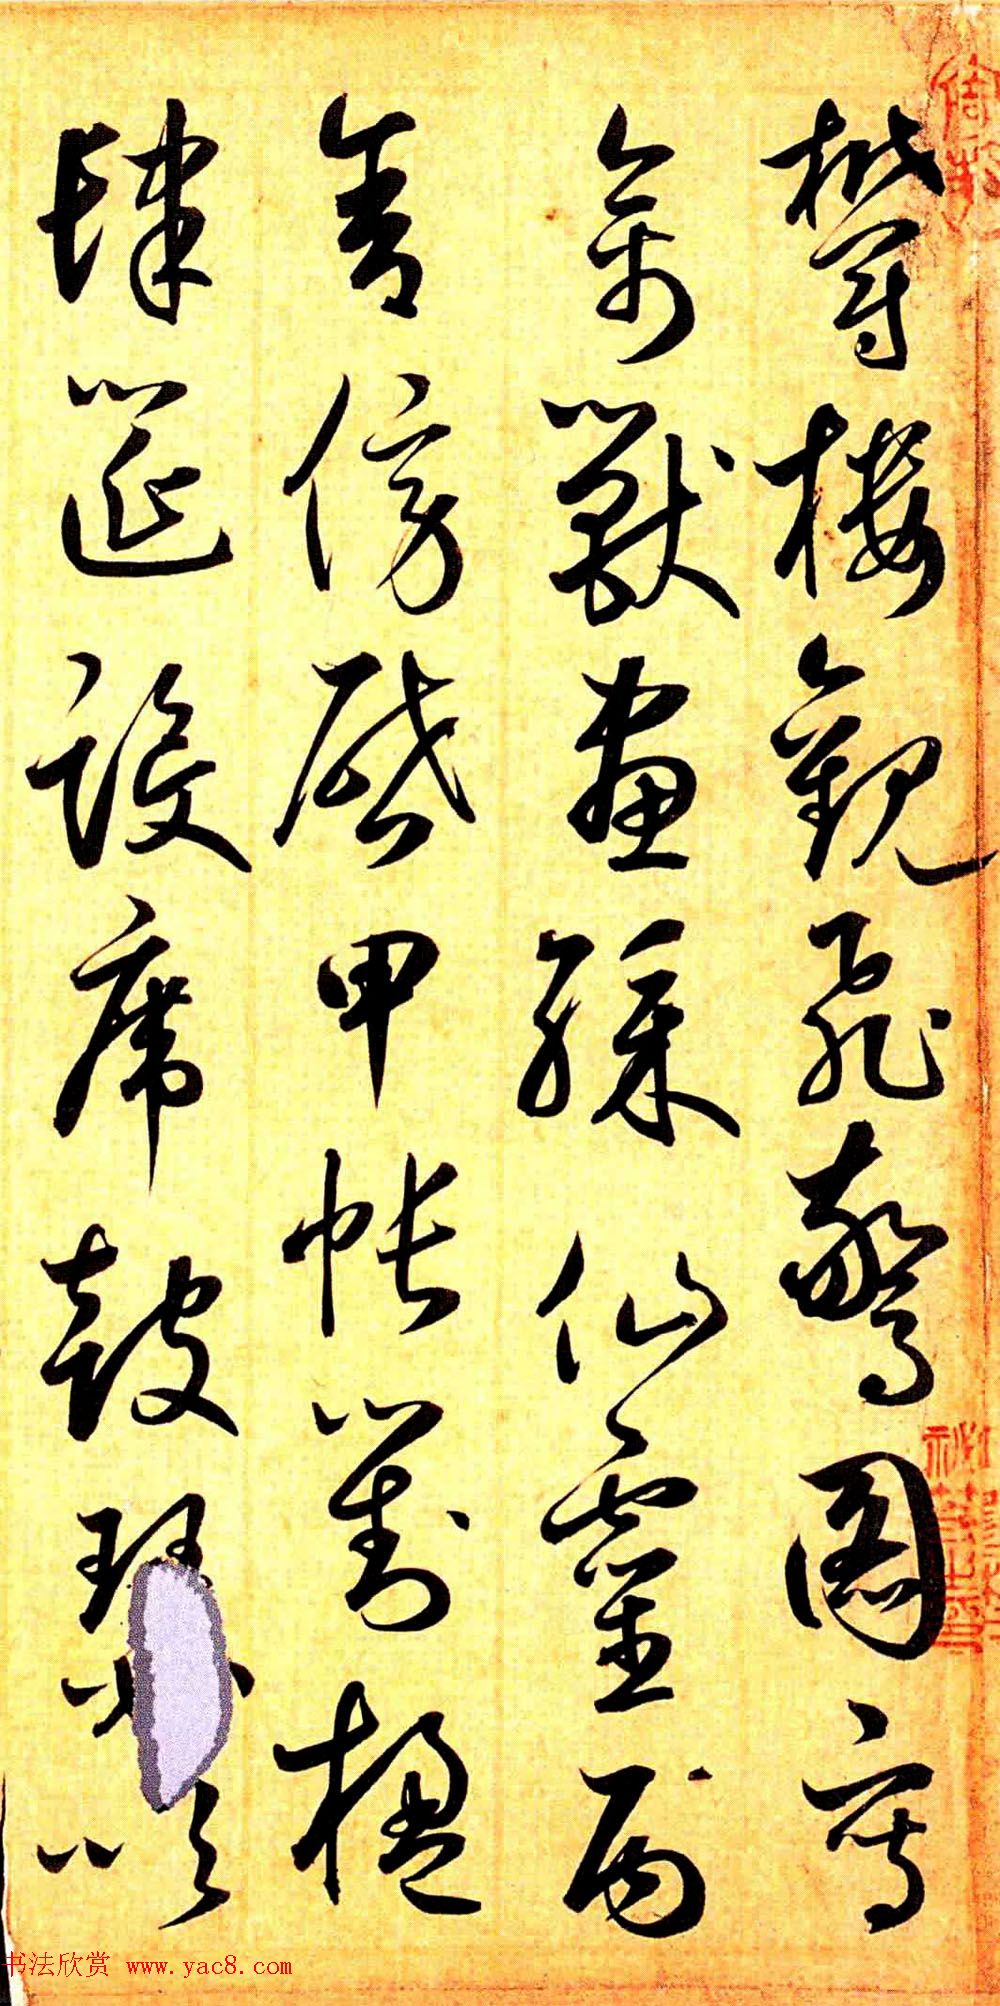 鬱樓觀飛驚圖寫
禽獸畫綵仙靈丙
舍傍啓甲帳對楹
肆筵設席鼓瑟吹
书法欣赏 www.yac8.com